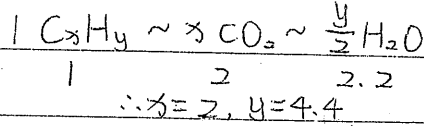 1 CₓHᵧ ~ x CO₂ ~ y/2 H₂O
1 2 2.2
∴ x = 2, y = 4.4